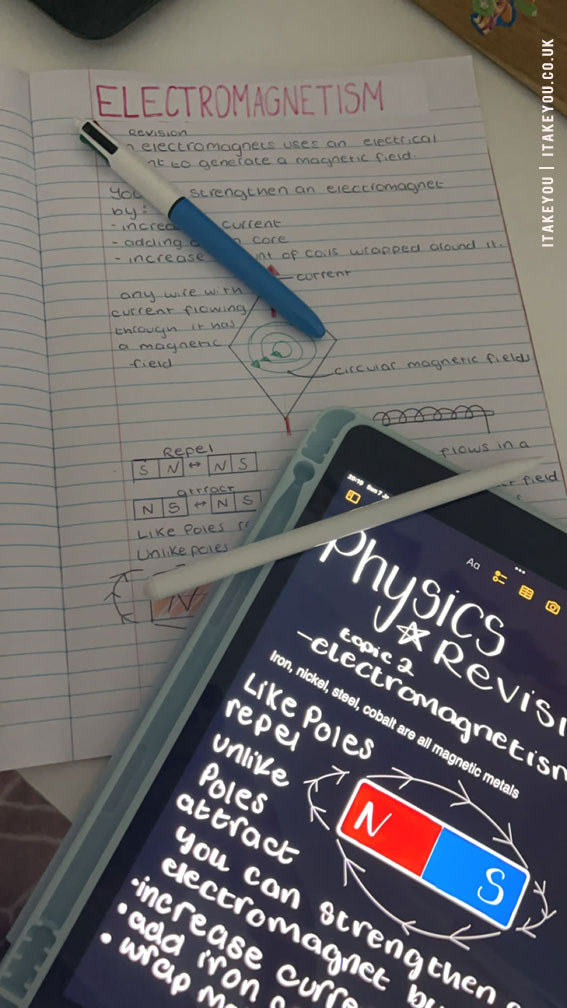 ITAKEYOU | ITAKEYOU.CO.UK
ELECTROMAGNETISM
Revision
electromagnets uses an electrical
to generate a magnetic field.
strengthen an electromagnet
by:
- current
- adding core
- increase of coils wrapped around it.
current
any wire with
current flowing
through it has
a magnetic
field
circular magnetic fields
Repel
S N ↔ N S
attract
N S ↔ N S
flows in a
field
Like Poles
Unlike poles
N
20:10 Sun 7
Aa
Physics
☆ Revisi
topic 2
- electromagnetism
Iron, nickel, steel, cobalt are all magnetic metals
Like Poles
repel
unlike
Poles
attract
N S
you can strengthen
electromagnet by
• increase curre
• add iron
• wrap